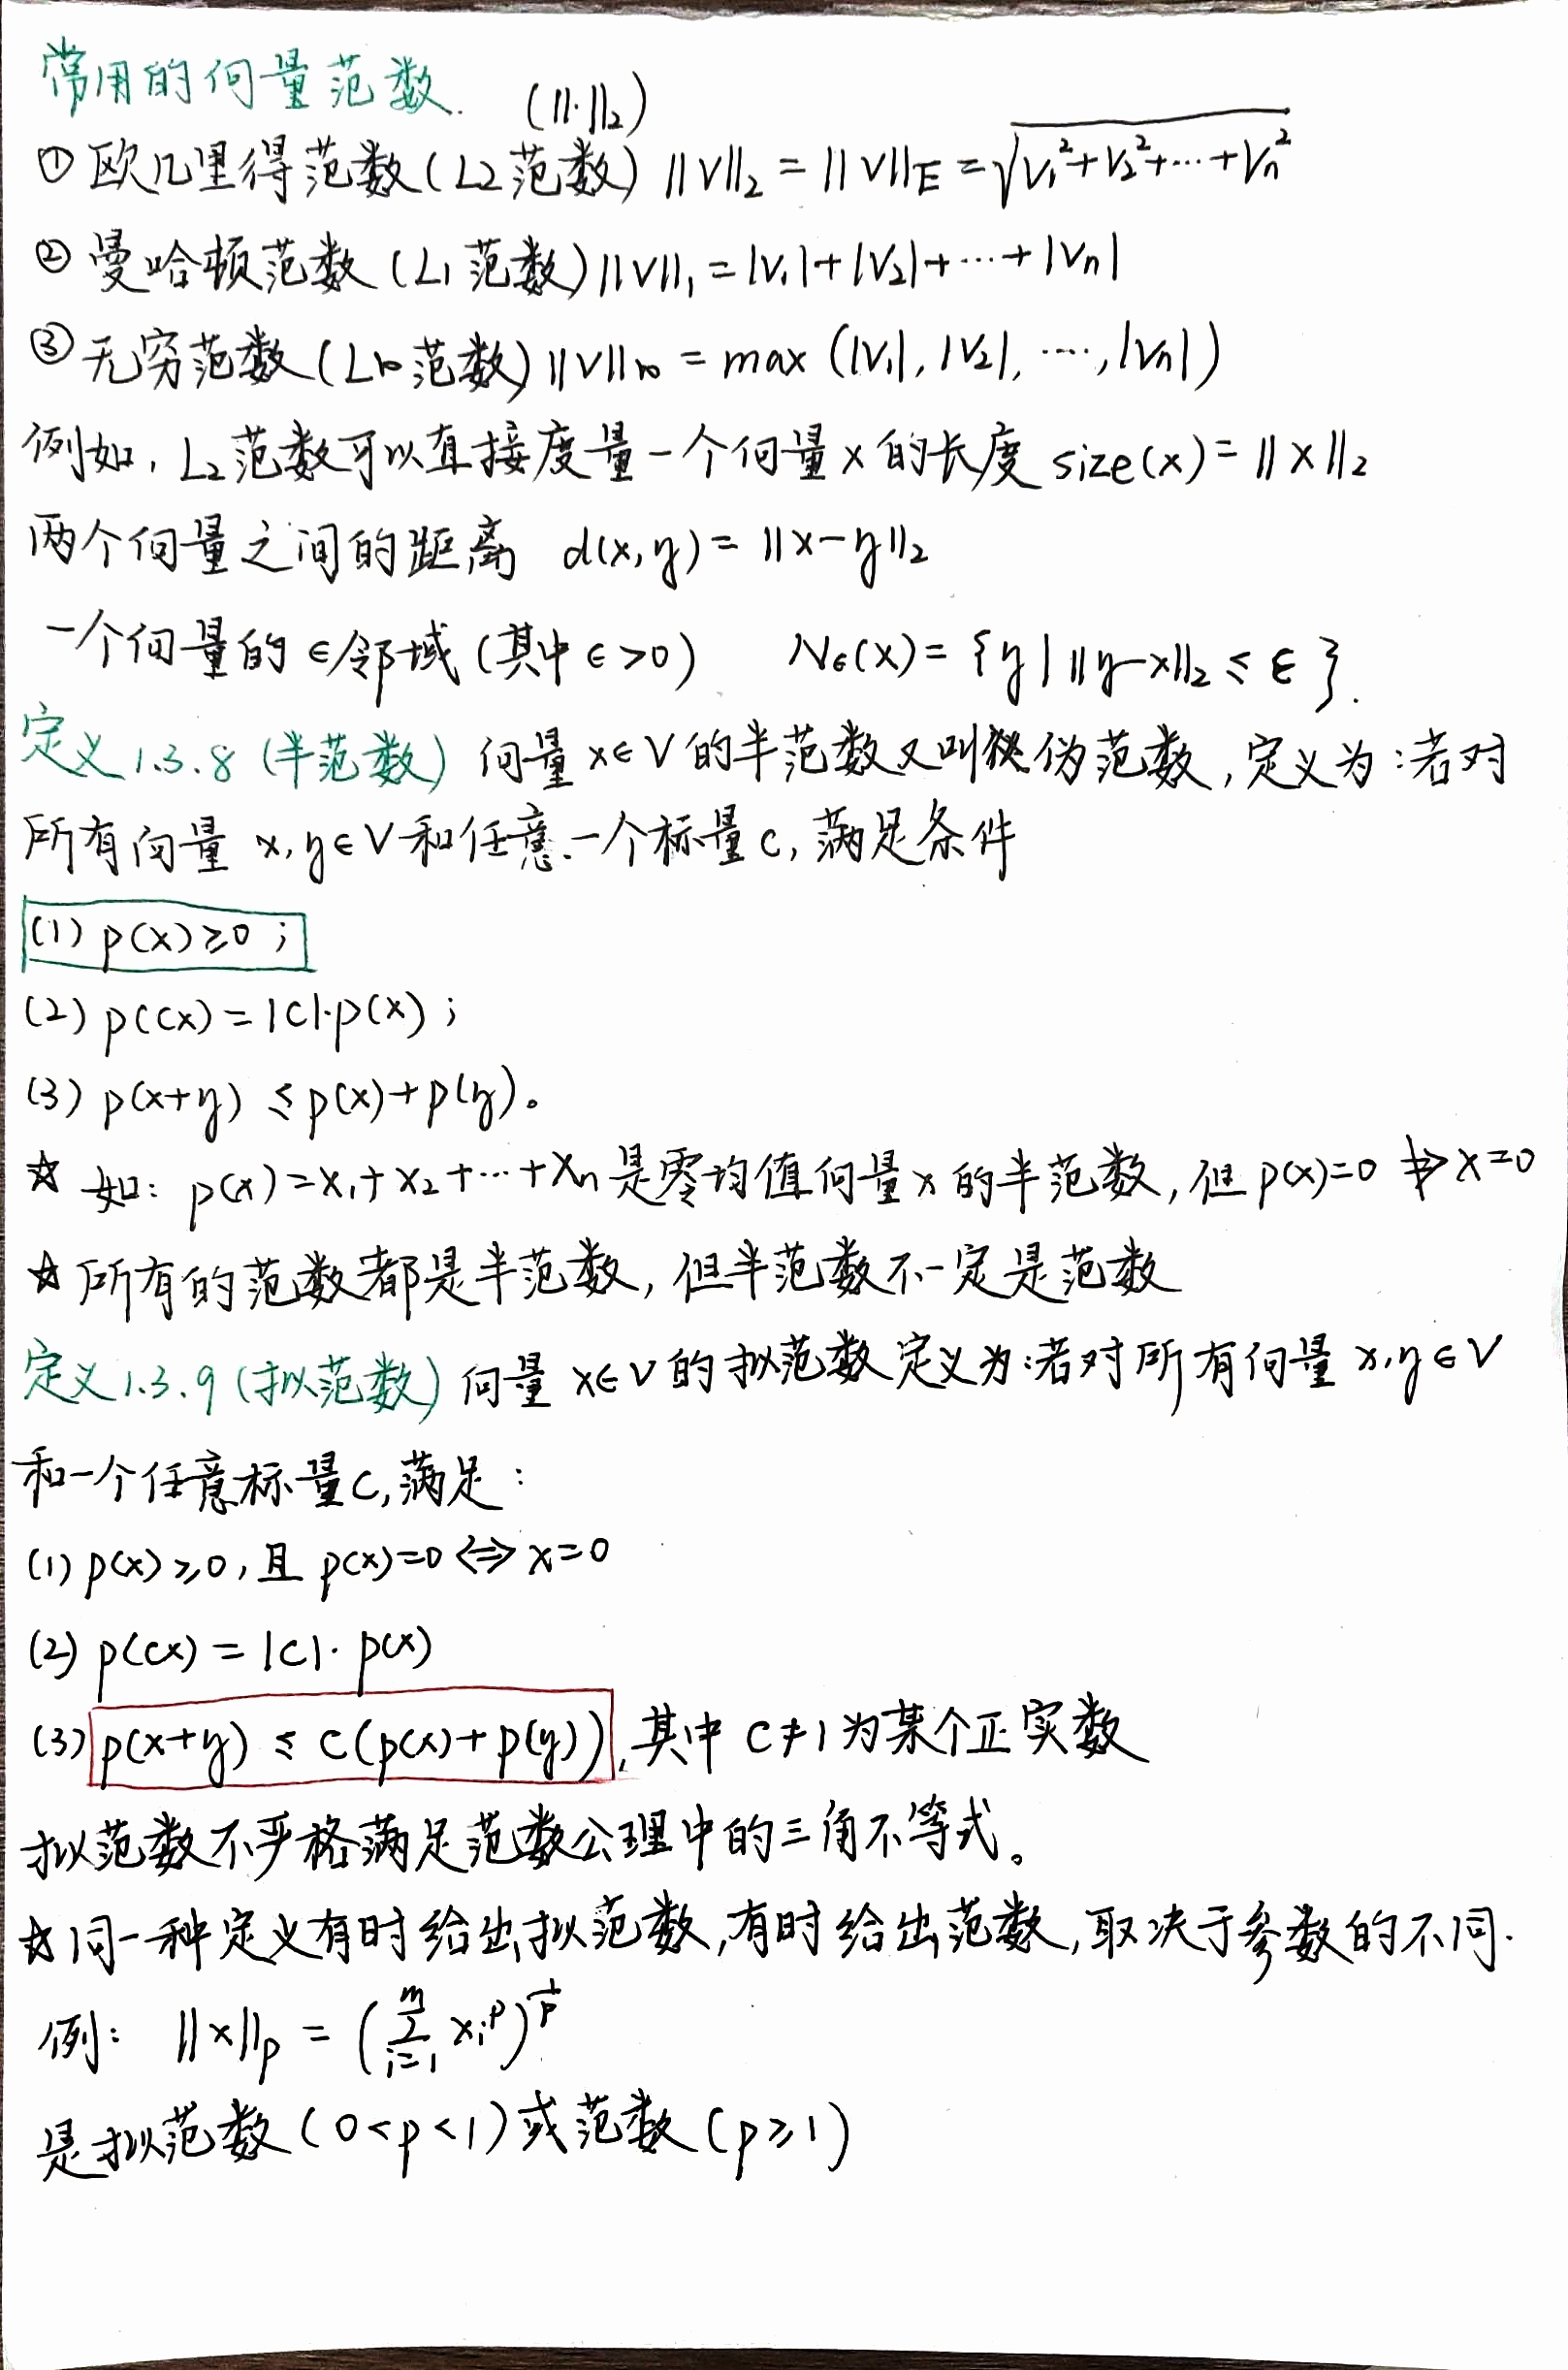 常用的向量范数.
(||·||₂)
① 欧几里得范数(L2范数) ||V||₂ = ||V||E = √(V₁²+V₂²+…+Vn²)
② 曼哈顿范数(L1范数) ||V||₁ = |V₁|+|V₂|+…+|Vn|
③ 无穷范数(L∞范数) ||V||∞ = max (|V₁|, |V₂|, …, |Vn|)
例如, L₂范数可以直接度量一个向量x的长度 size(x) = ||x||₂
两个向量之间的距离 d(x,y) = ||x-y||₂
一个向量的ϵ邻域(其中ϵ>0) Nϵ(x) = {y | ||y-x||₂ ≤ ϵ}.
定义1.3.8 (半范数) 向量x∈V的半范数又叫伪范数, 定义为:若对
所有向量 x,y∈V和任意一个标量c, 满足条件
(1) p(x)≥0;
(2) p(cx) = |c|·p(x);
(3) p(x+y) ≤ p(x)+p(y)。
☆ 如: p(x) = x₁+x₂+…+xn 是零均值向量x的半范数, 但p(x)=0 ⇏ x=0
☆ 所有的范数都是半范数, 但半范数不一定是范数
定义1.3.9 (拟范数) 向量 x∈V的拟范数定义为:若对所有向量 x,y∈V
和一个任意标量c, 满足:
(1) p(x)≥0, 且 p(x)=0 ⟺ x=0
(2) p(cx) = |c|·p(x)
(3) p(x+y) ≤ C(p(x)+p(y)), 其中 C≠1为某个正实数
拟范数不严格满足范数公理中的三角不等式。
☆ 同一种定义有时给出拟范数, 有时给出范数, 取决于参数的不同.
例: ||x||p = (∑ᵢ₌₁ᵐ xᵢᵖ)^(1/p)
是拟范数(0<p<1)或范数(p≥1)